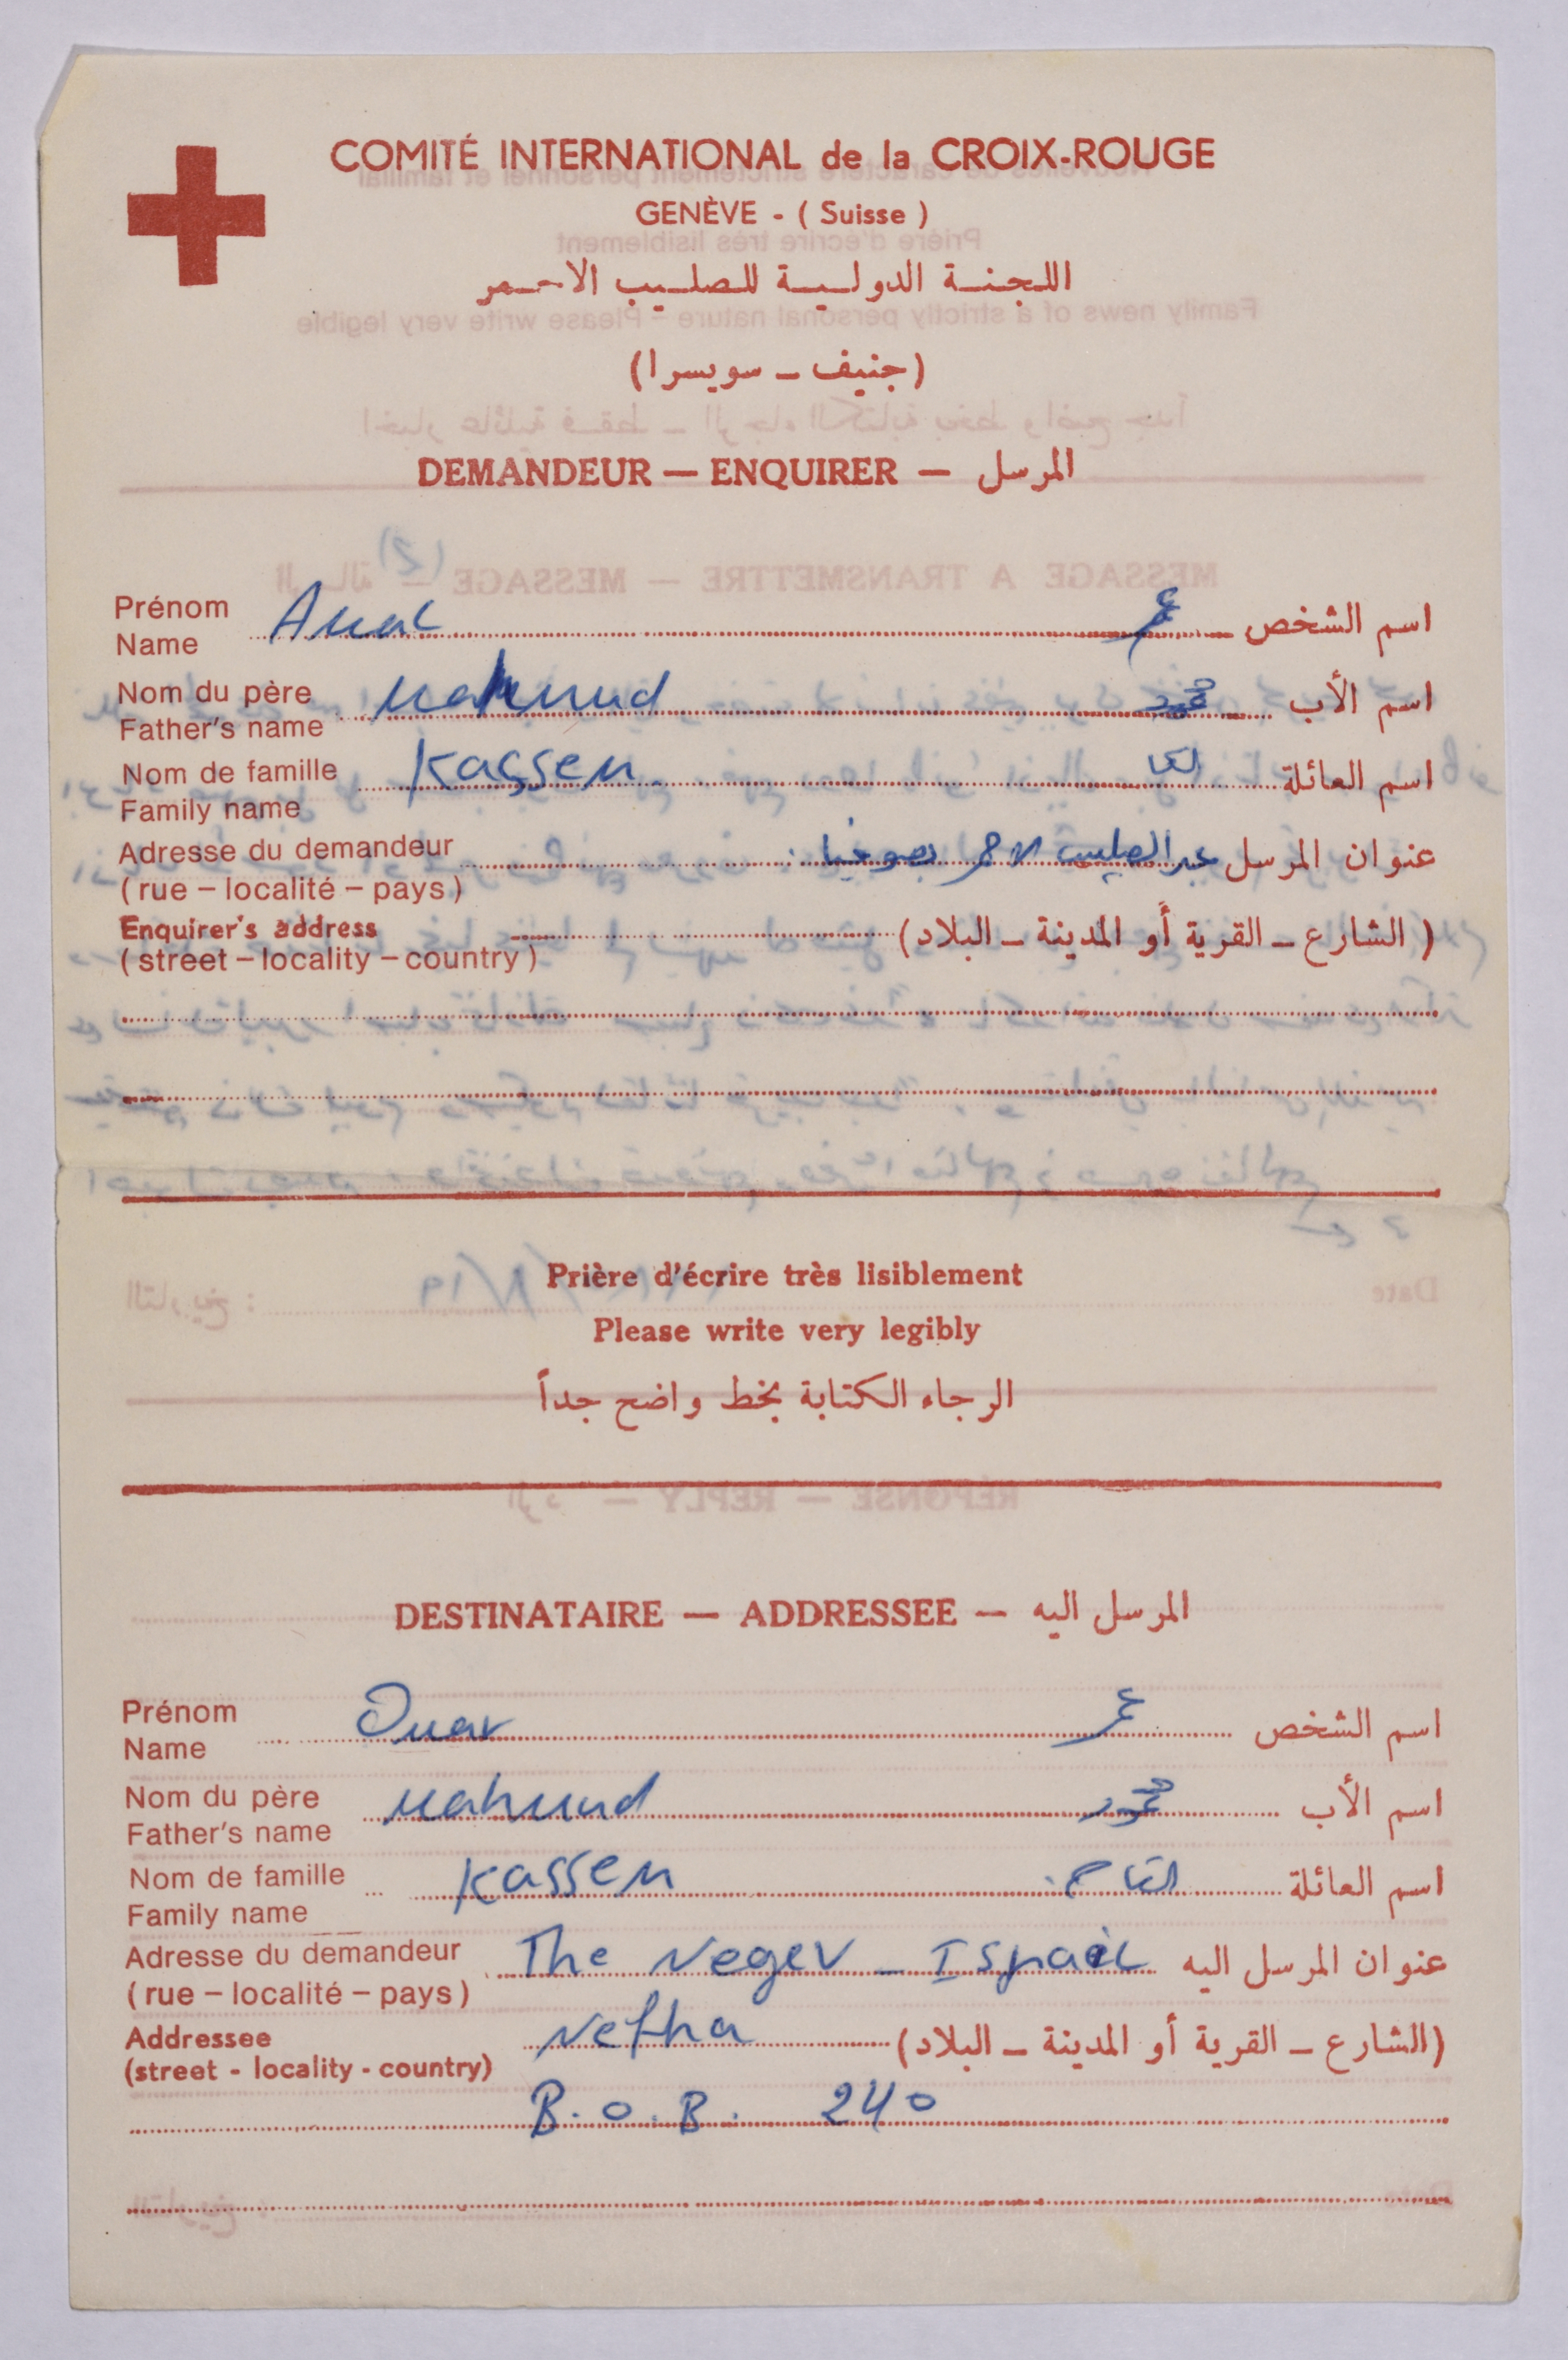 COMITÉ INTERNATIONAL de la CROIX-ROUGE
GENÈVE - ( Suisse )
اللجنة الدولية للصليب الاحمر
(جنيف - سويسرا)
DEMANDEUR — ENQUIRER — المرسل
Prénom
Name
اسم الشخص
Nom du père
Father's name
Mahmud
محمود
اسم الأب
Nom de famille
Family name
Kassem
اسم العائلة
Adresse du demandeur
(rue – localité – pays)
عنوان المرسل
Enquirer's address
(street – locality – country)
(الشارع - القرية أو المدينة - البلاد)
Prière d'écrire très lisiblement
Please write very legibly
الرجاء الكتابة بخط واضح جداً
DESTINATAIRE — ADDRESSEE — المرسل اليه
Prénom
Name
Omar
عمر
اسم الشخص
Nom du père
Father's name
Mahmud
محمود
اسم الأب
Nom de famille
Family name
Kassem
القاسم
اسم العائلة
Adresse du demandeur
(rue – localité – pays)
The Negev - Israel
عنوان المرسل اليه
Addressee
(street - locality - country)
Nefha
(الشارع - القرية أو المدينة - البلاد)
B.O.B. 240